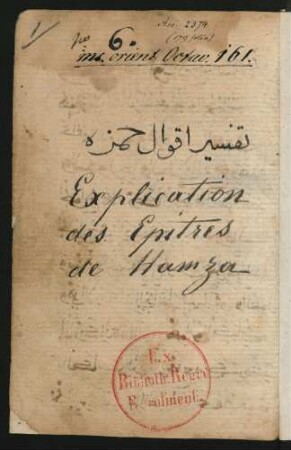 1
6.
ms. orient. Octav. 161.
تفسير اقوال حمزه
Explication
des Epitres
de Hamza
Ex
Biblioth. Regia
Berolinensi.